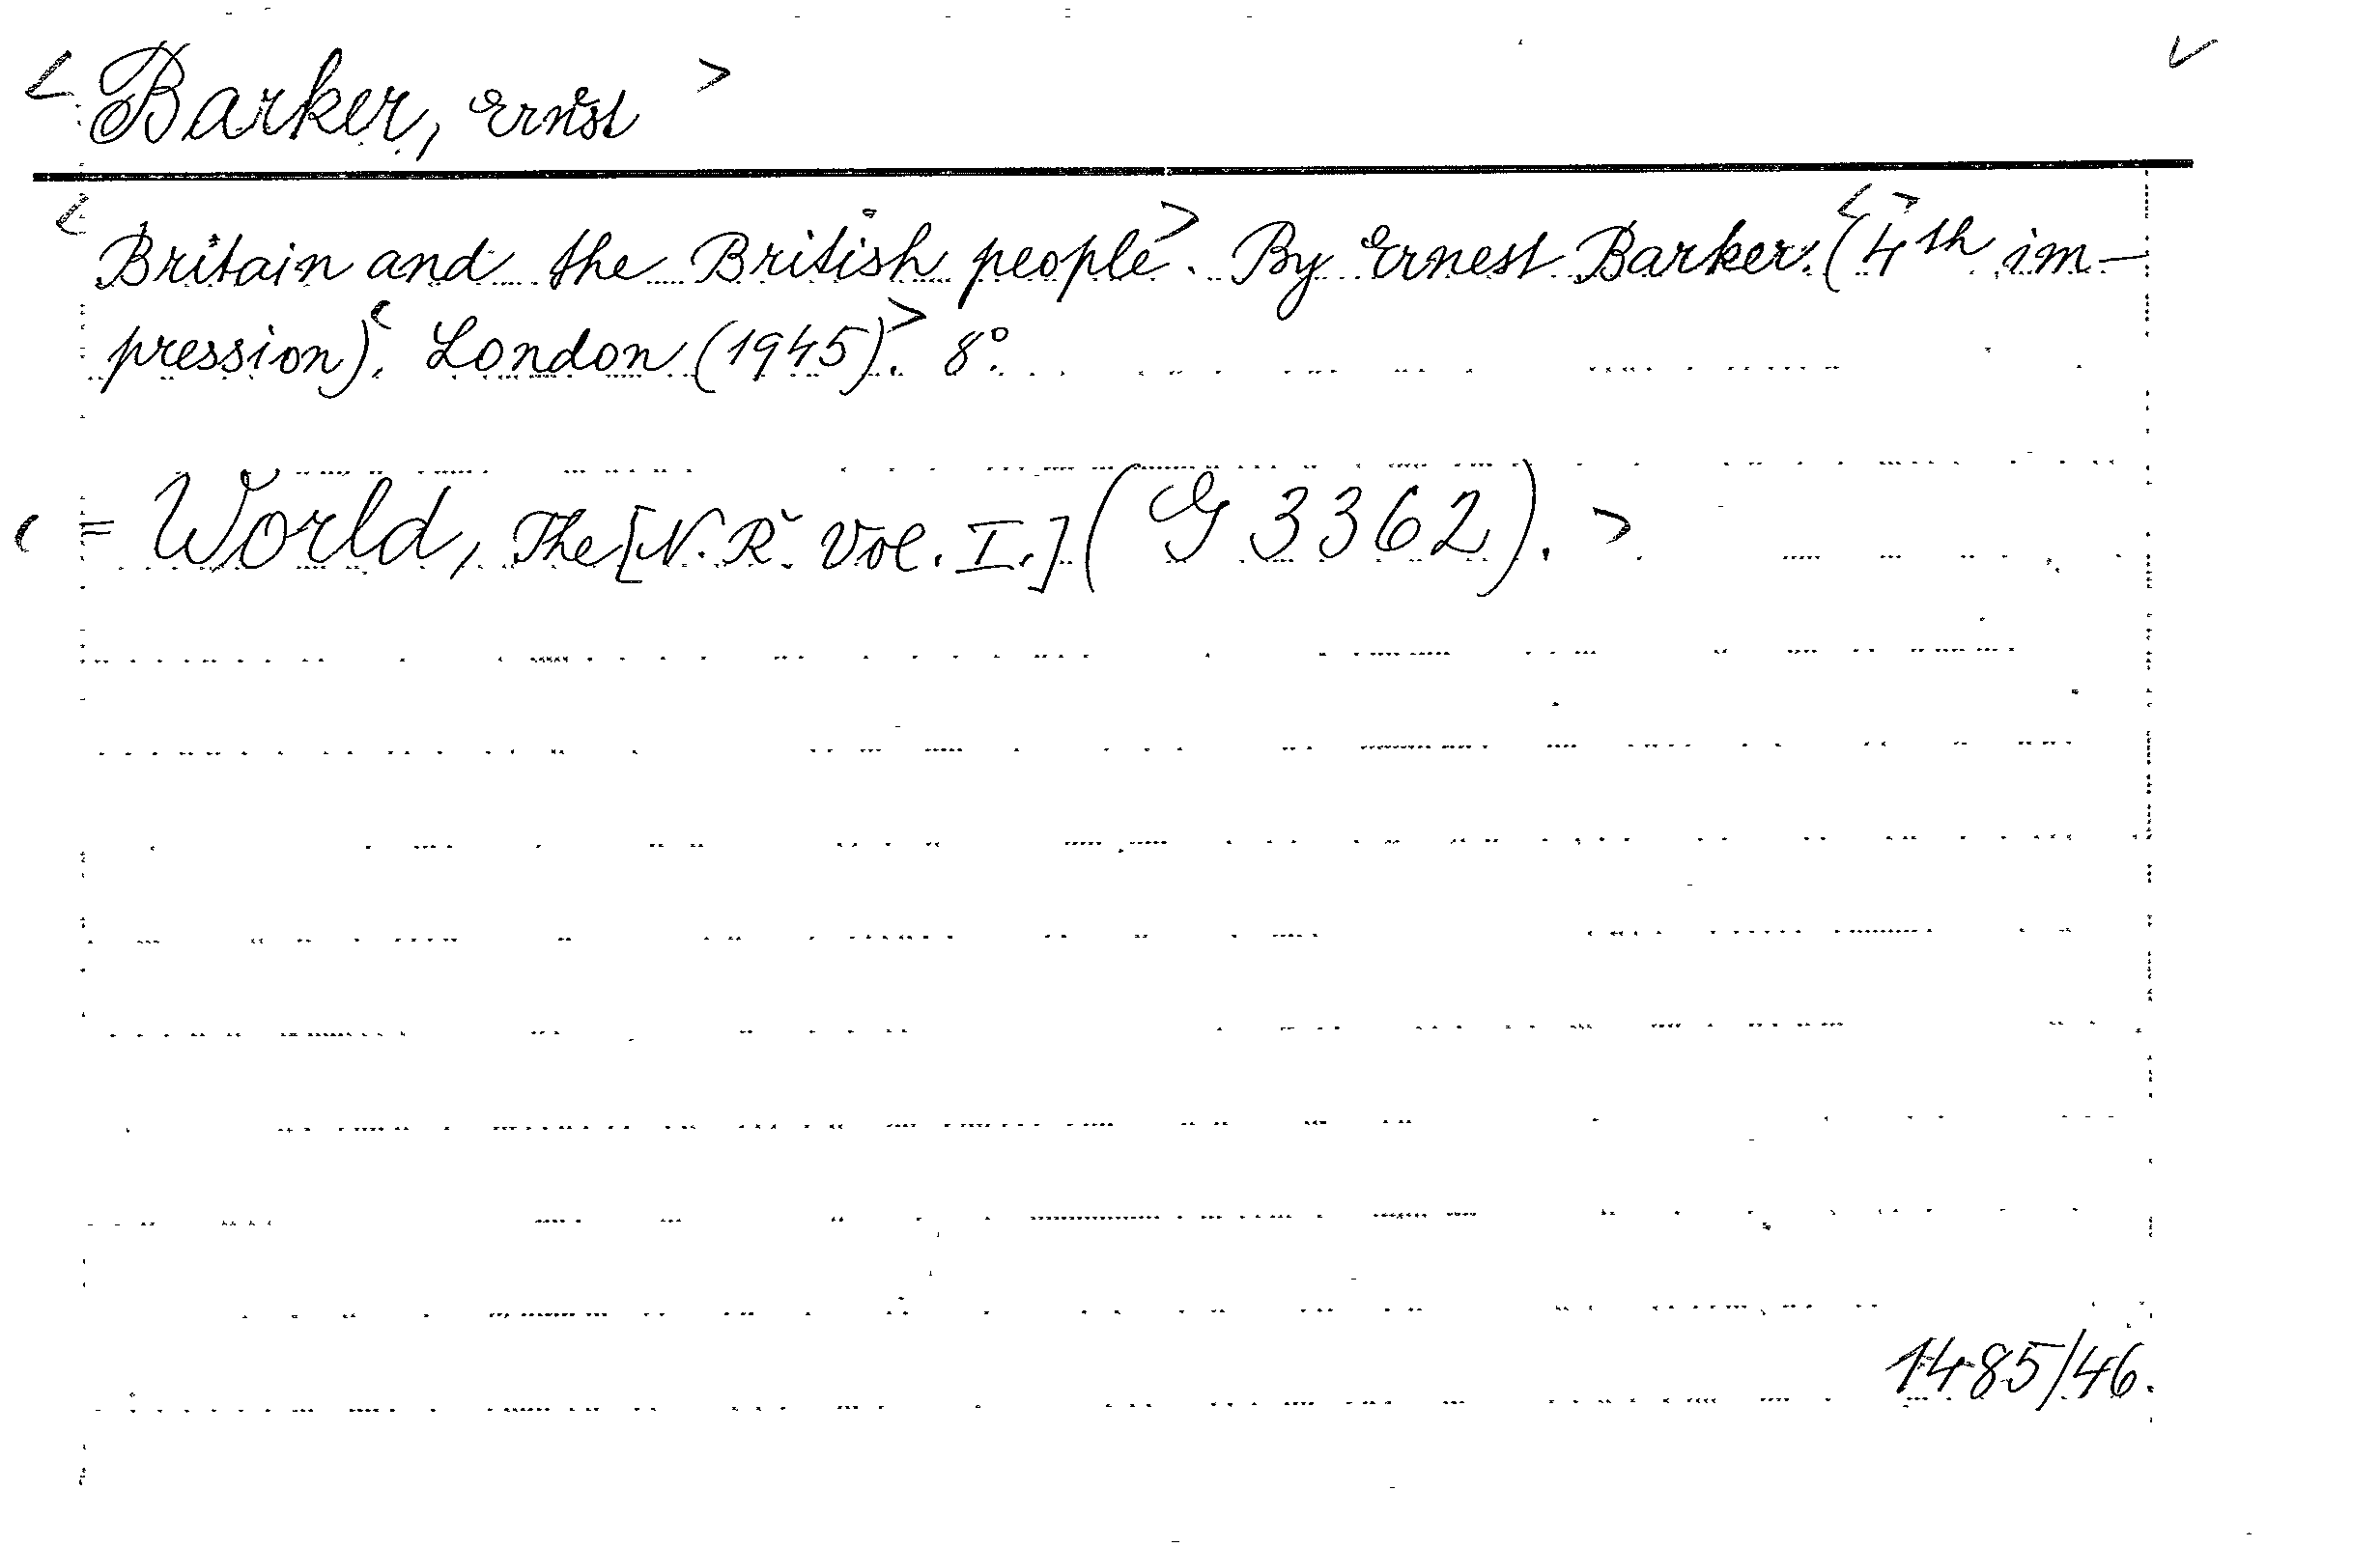 < Barker, Ernst >
< Britain and the British people >. By Ernest Barker. < (4 > th im-
pression) <. London (1945) >. 8°.
< = World, The [N. R. Vol. I.] (G 3362). >
1485/46.